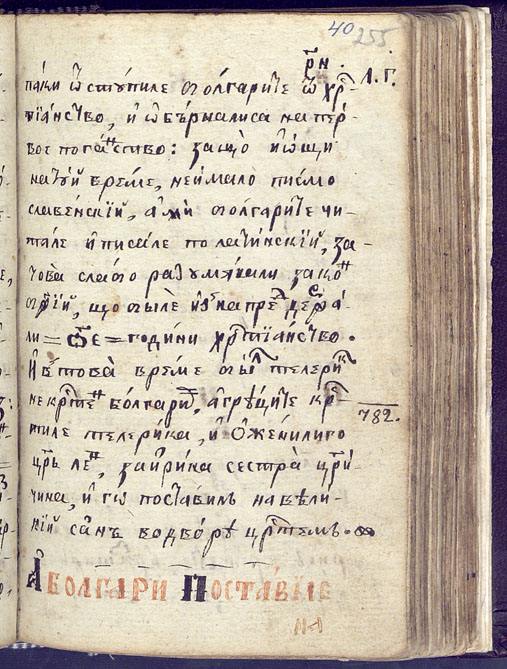 40 255
рн.
паки ѿстꙋпиле болгарите ѿ хрⷭ҇ Л.Г.
тїанство, и ѡбърналиса на пер-
вое погаⷩство: защо ѝѡщи
на тⷪй време, не имало писмо
славенский, ами болгарите чи-
тале и писале по латинский, за-
това слабо разꙋмѣвали закоⷩ
бжїй, що были ꙗзыка преⷤде, держа-
ли = ѳе = години хрⷭ҇тїанство.
И въ това време быⷧ телериⷦ
некрⷭ҇теⷩ болгариⷩ, а грꙋците крⷭ҇-
782.
тиле телерика, и ѡженилиго
цр҃ь леѡⷩ, за ирина сестра цр҃и-
чина, и го поставилъ на вели-
кїй санъ во дворꙋ цр҃скомъ.
А БОЛГАРИ ПОСТАВИЛЕ